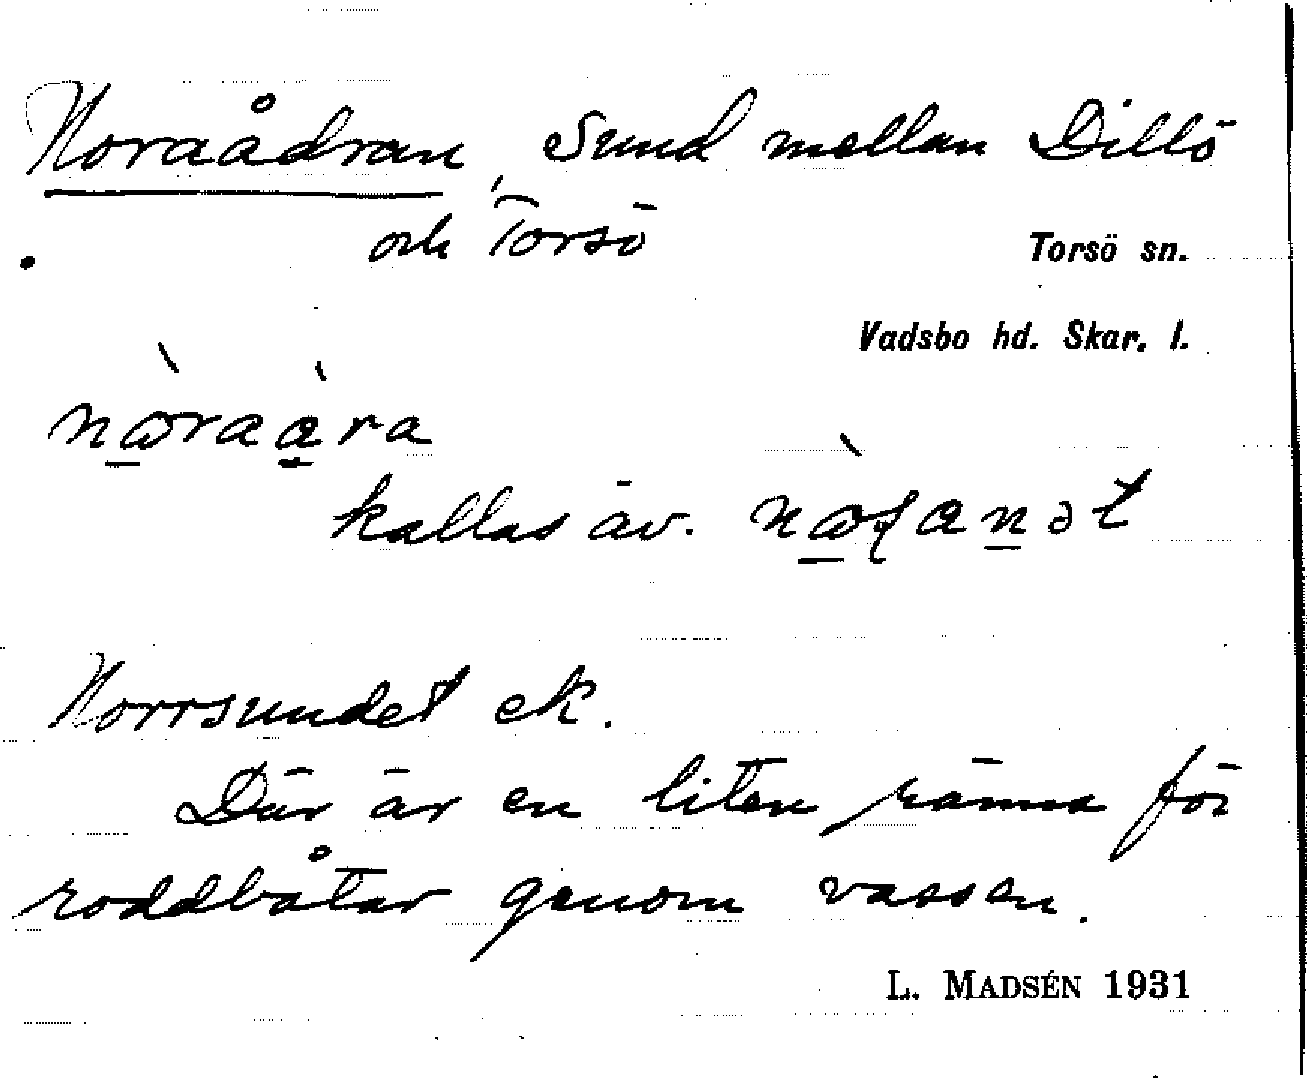 Noraådran, Sund mellan Dillö
och Torsö
Torsö sn.
Vadsbo hd. Skar. l.
kallas äv.
Norrsundet ek.
Där är en liten ränna för
roddbåtar genom vassen.
L. MADSÉN 1931